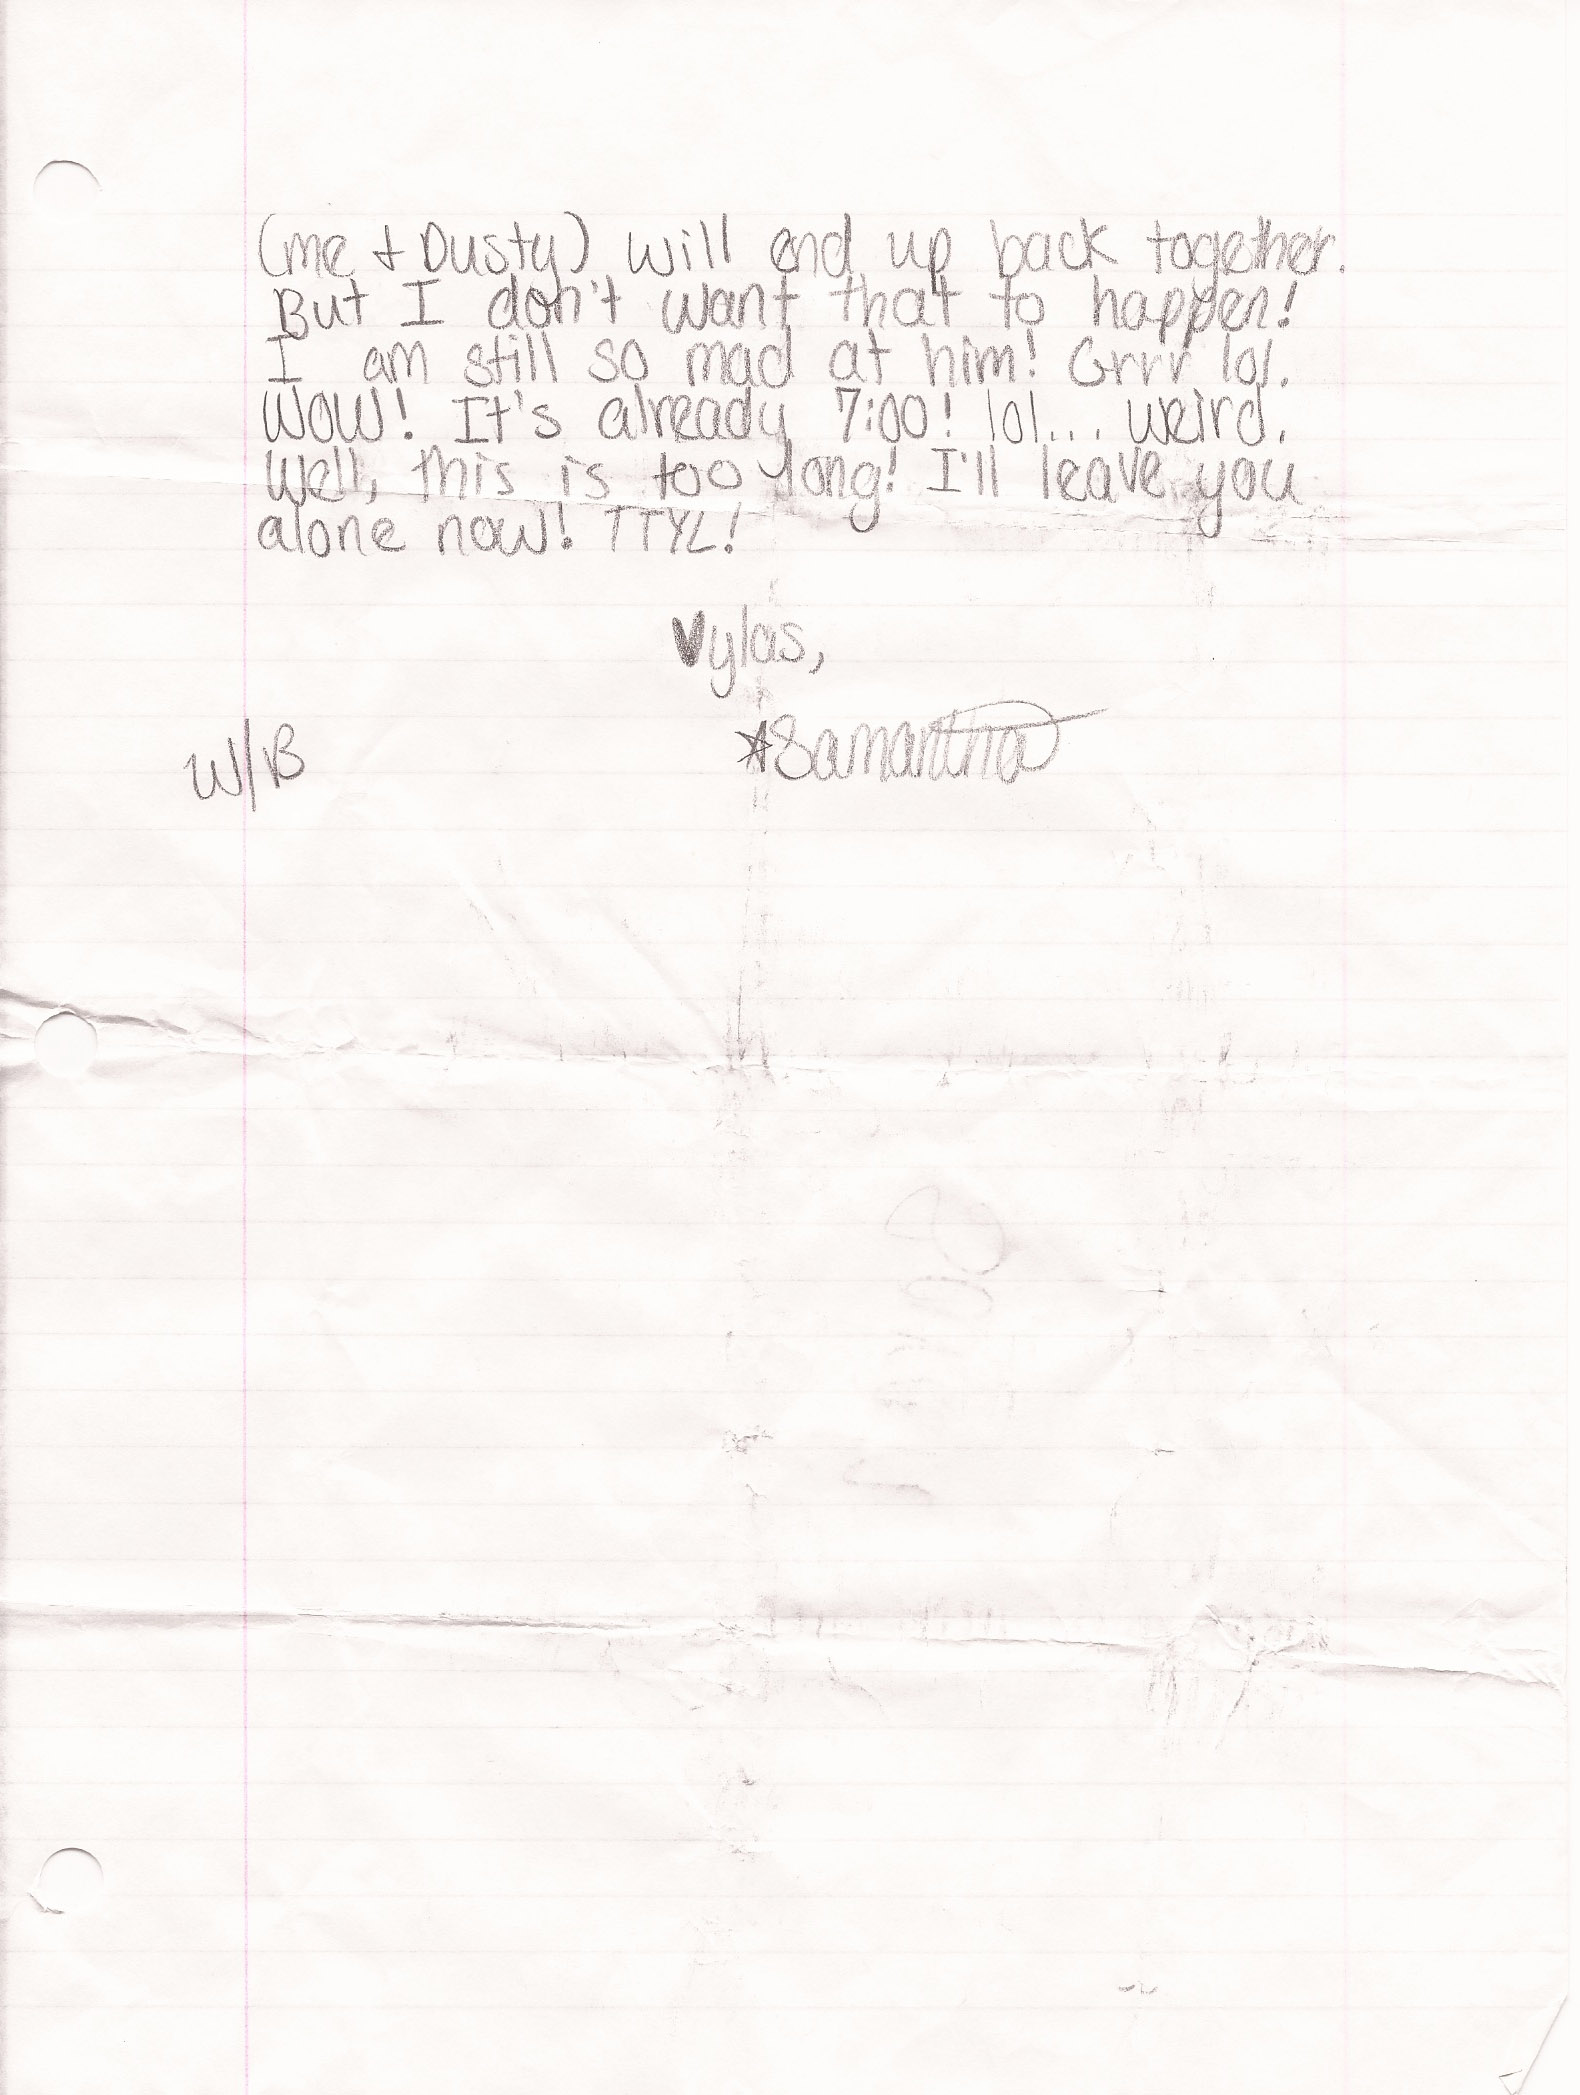 (me + Dusty) will end up back together.
But I don't want that to happen!
I am still so mad at him! Grrr lol.
Wow! It's already 7:00! lol... weird.
Well, this is too long! I'll leave you
alone now! TTYL!
♥ylas,
W/B
*Samantha